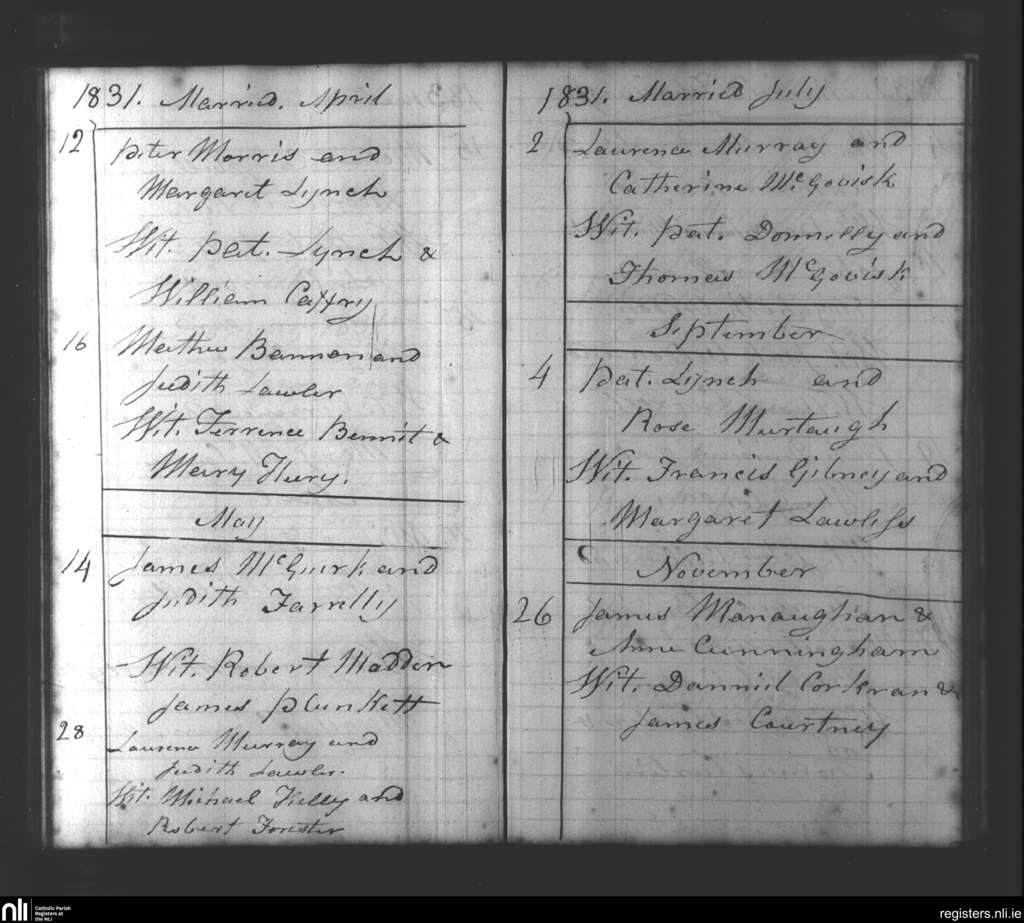 1831. Married. April
12 Peter Morris and
Margaret Lynch
Wit. Pat. Lynch &
William Caffry
16 Mathew Bannon and
Judith Lawler
Wit. Terrence Bennit &
Mary
May
14 James McGuirk and
Judith Farrelly
Wit. Robert Madden
James Plunkett
28 Laurence Murray and
Judith Lawler.
Wit. Michael Kelly and
Robert Forester
1831. Married July
2 Laurence Murray and
Catherine McGovisk
Wit. Pat. Donnelly and
Thomas McGovisk
September
4 Pat. Lynch and
Rose Murtaugh
Wit. Francis Gibney and
Margaret Lawless
November
26 James Manaughan &
Anne Cunningham
Wit. Danniel Corkran &
James Courtney
nli Catholic Parish
Registers at
the NLI
registers.nli.ie